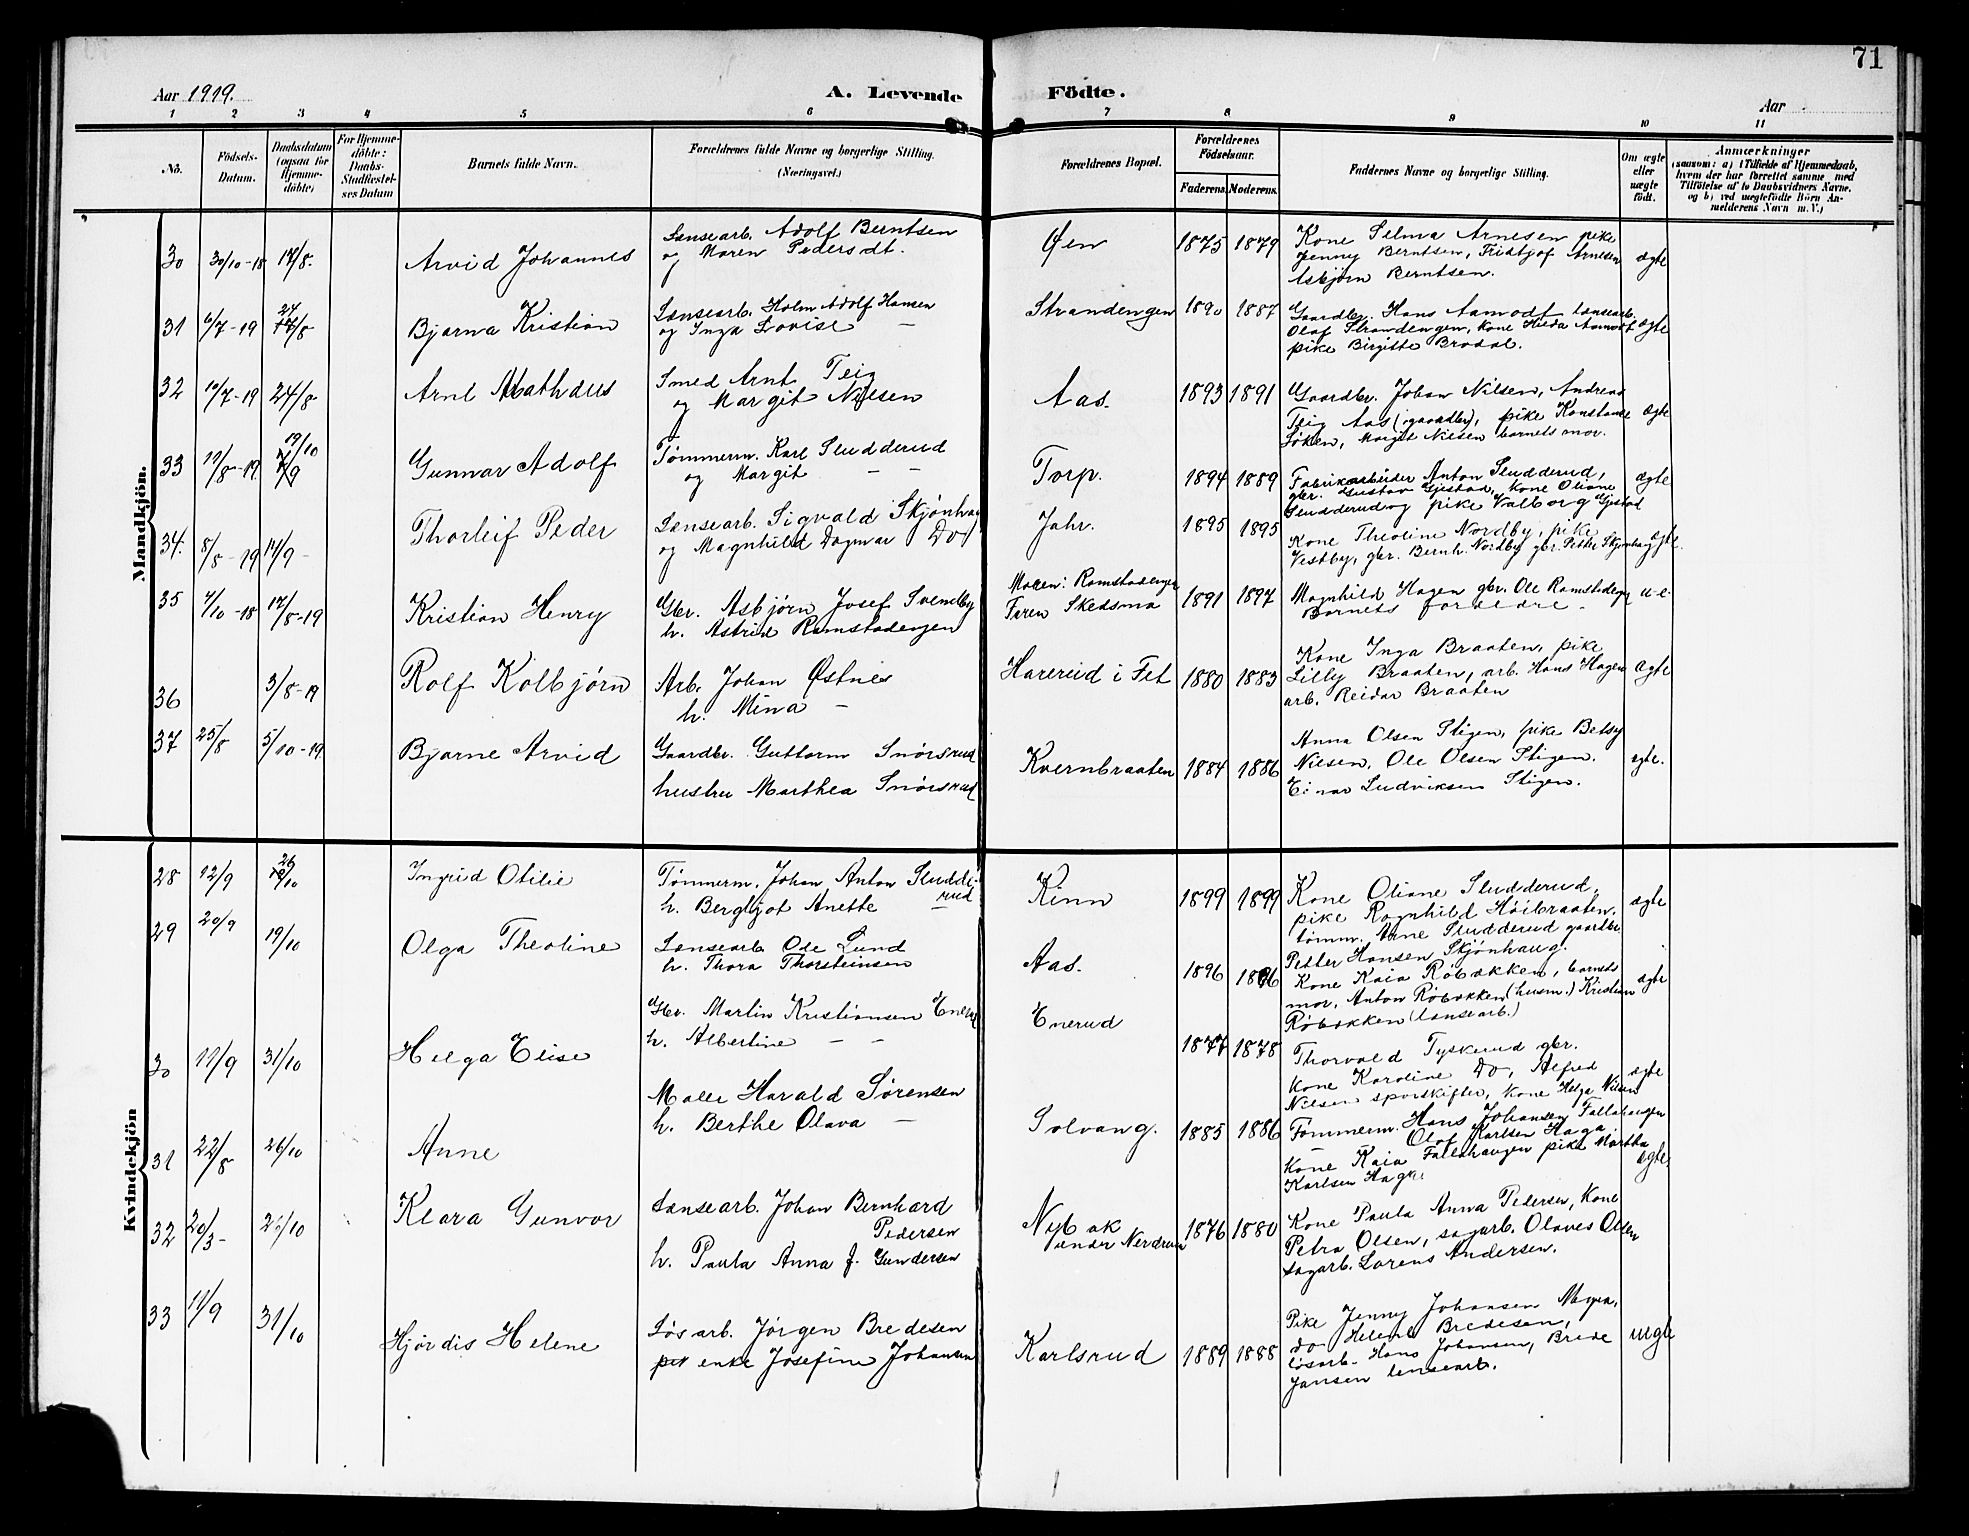 71
Aar 1919.
A. Levende Födte.
Aar
1 2 3 4 5 6 7 8 9 10 11
No.
Födsels-Datum.
Daabsdatum (ogsaa for Hjemme-döbte)
For Hjemme-döbte: Daabs-Stadfæstel-ses Datum
Barnets fulde Navn.
Forældrenes fulde Navne og borgerlige Stilling. (Næringsvei.)
Forældrenes Bopæl.
Forældrenes Födselsaar.
Faderens. Moderens.
Faddernes Navne og borgerlige Stilling.
Om ægte eller uægte födt.
Anmærkninger
(saasom: a) i Tilfælde af Hjemmedaab, hvem der har forrettet samme med Tilföielse af to Daabsvidners Navne, og b) ved uægtefödte Börn An-melderens Navn m. V.)
Mandkjön.
30 30/10-18 17/8. Arvid Johannes
Lænsearb. Adolf Berntsen
og Maren Pedersdt.
Øen 1875 1879
Kone Selma Arnesen pike
Jenny Berntsen, Fridtjof Arnesen
Asbjørn Berntsen.
ægte
31 6/7-19 24/8 Bjarna Kristian
Lænsearb. Holm Adolf Hansen
og Inga Lovise —
Strandengen 1890 1887
Gaardbr. Hans Aamodt lænsearb.
Olaf Strandengen, kone Hilda Aamodt
pike Birgitte Brodal.
ægte
32 10/7-19 24/8 Arnt Mathæus
Smed Arnt Teig
og Margit Nilsen
Aas. 1893 1891
Gaardbr. Johan Nilsen, Andreas
Teig Aas (gaardbr), pike Konstanse
Løken, Margit Nilsen barnets mor.
ægte
33 19/8-19 19/10 Gunnar Adolf
Tømmerm. Karl Sludderud
og Margit — —
Torp. 1894 1889
Fabrikarbeider Anton Sludderud,
gbr. Gustav Gjestad, kone Oliane
Sludderud og pike Valborg Gjestad
ægte
34. 8/8-19 14/9- Thorleif Peder
Lænsearb. Sigvald Skjønhaug
og Magnhild Dagmar Do/
Jahr. 1895 1895
Kone Theoline Nordby, pike
Vestby, gbr. Bernh. Nordby gbr. Petter Skjønhaug
ægte.
35 7/10-18 17/8-19 Kristian Henry
Gbr. Asbjørn Josef Svendby
h. Astrid Ramstadengen
Moren: Ramstadengen
Faren Skedsmo 1891 1897
Magnhild Hagen gbr. Ole Ramstadengen
Barnets foreldre.
u-e-
36 3/8-19 Rolf Kolbjørn
Arb. Johan Østnes
h. Mina —
Harereid i Fet 1880 1883
Kone Inga Braaten, pike
Lilly Braaten, arb. Hans Hagen
arb. Reidar Braaten
ægte
37 25/8 5/10-19 Bjarne Arvid
Gaardbr. Guttorm Snørsrud
hustru Marthea Snørsrud
Kvernbraaten 1884 1886
Anna Olsen Stigen, pike Betsy
Nilsen, Ole Olsen Stigen.
Einar Ludviksen Stigen.
ægte.
Kvindekjön
28 12/9 26/10 Ingrid Otilie
Tømmerm. Johan Anton Sludde-
rud
h. Bergljot Anette —
Kinn 1899 1899
Kone Oliane Sludderud,
pike Ragnhild Höibraaten.
tømm. Arne Sludderud gaardbr
Petter Hansen Skjönhaug.
ægte
29 20/9 19/10 Olga Theoline
Lænsearb Ole Lund
h. Thora Thorsteinsen
Aas. 1896 1896
Kone Kaia Röbækken, barnets
mor, Anton Röbækken (husm.) Kristian
Röbækken (lænsearb.)
ægte
30 17/9 31/10 Helga Elise
Gbr. Martin Kristiansen Enerud
h. Albertine — —
Enerud 1877 1878
Thorvald Tyskerud gbr.
kone Karoline Do, Alfred
Nilsen sporskifter, kone Helga Nilsen
ægte
31 22/8 26/10 Anne
Maler Harald Sørensen
h. Berthe Olava —
Solvang. 1885 1886
Tømmerm. Hans Johansen Fallahaugen
Olaf Karlsen Haga,
kone Kaia Fallahaugen pike Martha
Karlsen Haga
ægte.
32 20/3- 26/10 Klara Gunvor
Lænsearb. Johan Bernhard
Pedersen
h. Paula Anna f. Gundersen
Nybak
under Nerdrum 1876 1880
Kone Paula Anna Pedersen, kone
Petra Olsen, sagarb. Olaves Olsen
sagarb. Lorens Andersen.
33 11/9 31/10 Hjørdis Helene
Løsarb. Jørgen Bredesen
enke Josefine Johansen
Karlsrud 1889 1888
Pike Jenny Johansen Moen,
do Helene Bredesen,
løsarb. Hans Johansen, Brede
Jansen lensearb.
uægte